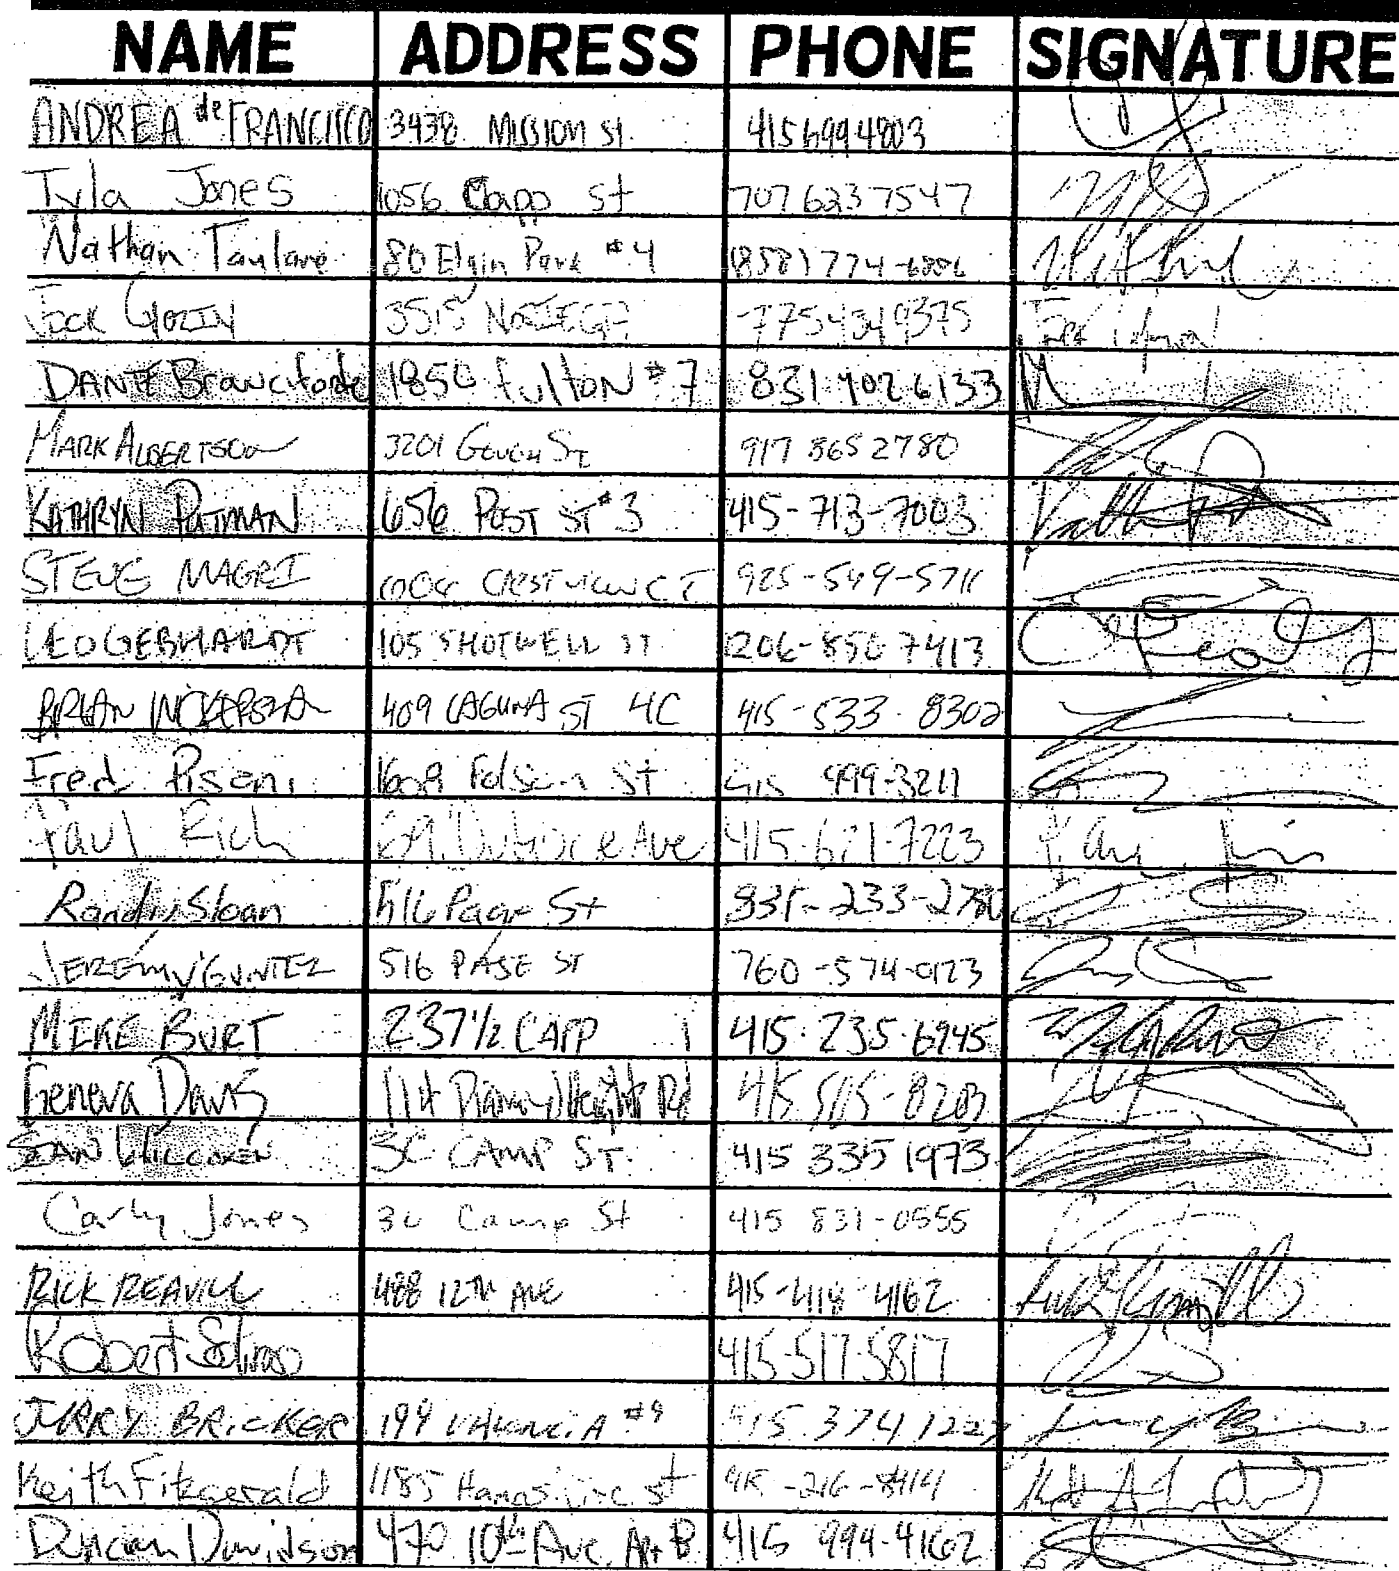 NAME ADDRESS PHONE SIGNATURE
ANDREA de FRANCISCO 3438 MISSION St. 415 699 4803
Tyla Jones 1056 Capp St 707 623 7547
Nathan 80 Elgin Park #4 (858) 774-6886
Jack 3515 775 434 9375
DANTE Branciforte 1850 fulton #7 831 402 6133
MARK ALBERTSON 3201 GOUGH ST 917 865 2780
KATHRYN PUTMAN 656 POST ST #3 415-713-7003
STEVE MAGRI CRESTVIEW CT 925-549-5711
LEO GEBHARDT 105 SHOTWELL ST 206-850 7413 Leo
BRIAN 409 LAGUNA ST 4C 415-533-8302
Fred Pisoni 1608 Folsom St 415 999-3211
Paul Rich Duboce Ave 415-621-7223
Randy Sloan 516 Page St 831-233-2780
JEREMY 516 PAGE ST 760-574-0123
MIKE BURT 237 1/2 CAPP 415-235-6945
Geneva Davis 114 Diamond Height Rd 415 515-8203
3C CAMP ST. 415 335 1973
Carly Jones 3C Camp St 415 831-0555
RICK REAVILL 488 12TH AVE 415-418-4162
Robert 415-517-5817
JERRY BRICKER 199 VALENCIA #9 415 374 1227
Keith Fitzgerald 1185 St 415-216-8414
Duncan Davidson 470 10th Ave. Apt B 415 994-4162